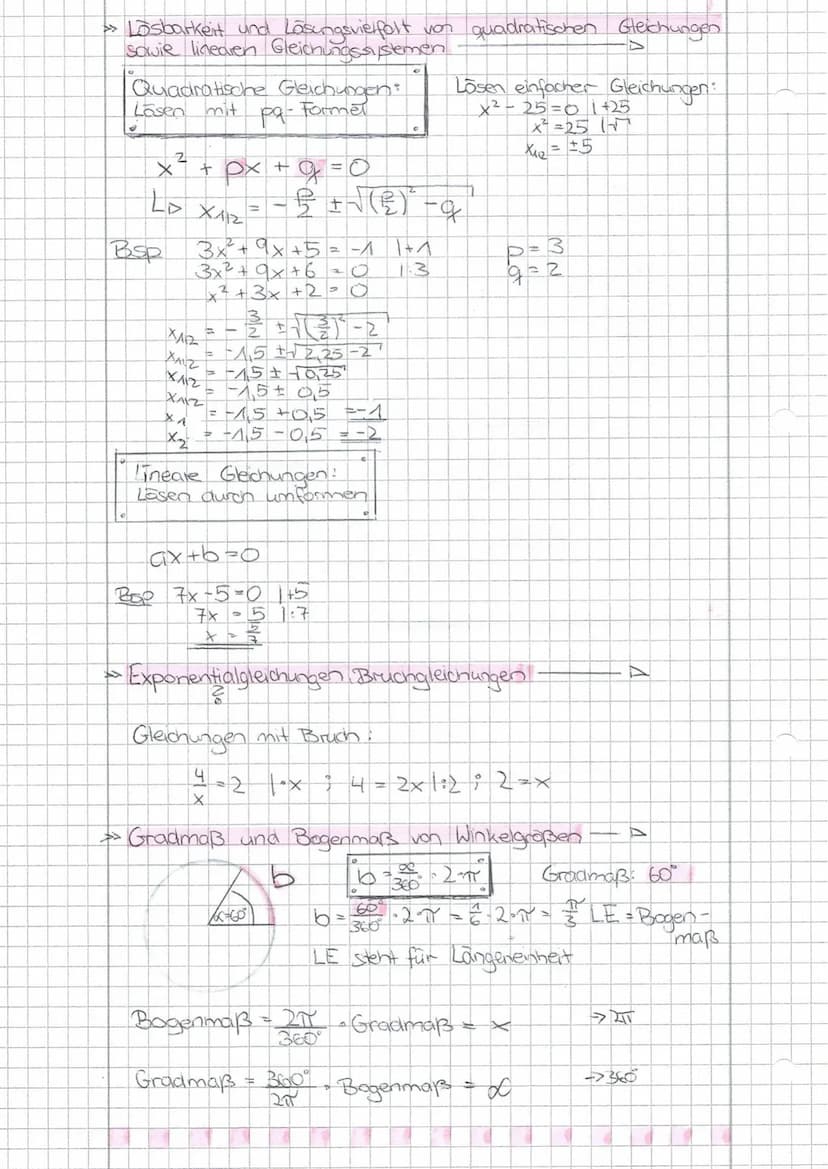 >> Lösbarkeit und Lösungsvielfalt von quadratischen Gleichungen
sowie linearen Gleichungssystemen
Quadratische Gleichungen:
Lösen mit pq-Formel
Lösen einfacher Gleichungen:
x² - 25 = 0 |+25
x² = 25 |√
x₁/₂ = ±5
x² + px + q = 0
↳ x₁/₂ = -p/2 ± √((p/2)² - q)
Bsp 3x² + 9x + 5 = -1 |+1
3x² + 9x + 6 = 0 |:3
x² + 3x + 2 = 0
p = 3
q = 2
x₁/₂ = -3/2 ± √((3/2)² - 2)
x₁/₂ = -1,5 ± √2,25-2
x₁/₂ = -1,5 ± √0,25
x₁/₂ = -1,5 ± 0,5
x₁ = -1,5 + 0,5 = -1
x₂ = -1,5 - 0,5 = -2
lineare Gleichungen:
Lösen durch umformen
ax + b = 0
Bsp 7x - 5 = 0 |+5
7x = 5 |:7
x = 5/7
>> Exponentialgleichungen, Bruchgleichungen
?
Gleichungen mit Bruch:
4/x = 2 |·x ; 4 = 2x |:2 ; 2 = x
>> Gradmaß und Bogenmaß von Winkelgrößen
b
α=60°
b = α/360° · 2·π
Gradmaß: 60°
b = 60°/360° · 2π = 1/6 · 2·π = π/3 LE = Bogen-
maß
LE steht für Längeneinheit
Bogenmaß = 2π/360° · Gradmaß = x → 2π
Gradmaß = 360°/2π · Bogenmaß = α → 360°